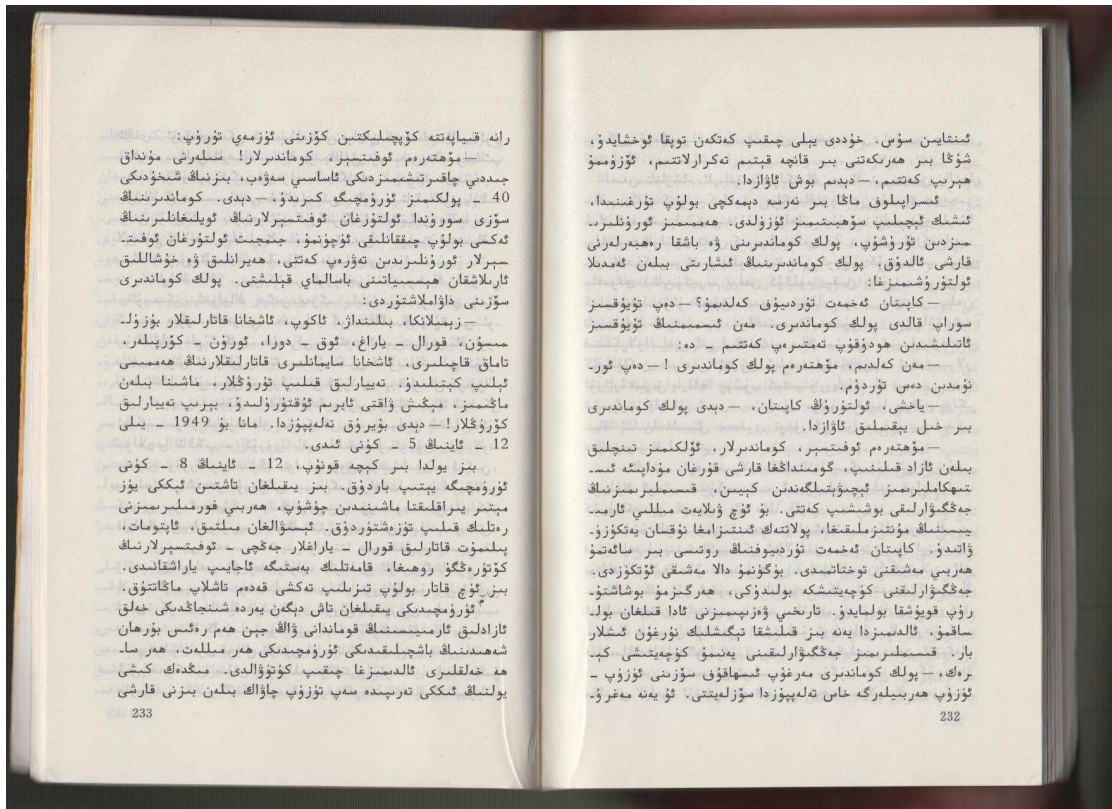 ئىنتايىن سۇس. خۇددى يېلى چىقىپ كەتكەن توپقا ئوخشايدۇ،
شۇڭا بىر ھەرىكەتنى بىر قانچە قېتىم تەكرارلاتتىم، ئۆزۈممۇ
ھېرىپ كەتتىم، — دېدىم بوش ئاۋازدا.
ئىسراپىلوف ماڭا بىر نەرسە دېمەكچى بولۇپ تۇرغىنىدا،
ئىشىك ئېچىلىپ سۆھبىتىمىز ئۈزۈلدى. ھەممىمىز ئورۇنلىرىـ
مىزدىن تۇرۇشۇپ، پولك كوماندىرىنى ۋە باشقا رەھبەرلەرنى
قارشى ئالدۇق: پولك كوماندىرىنىڭ ئىشارىتى بىلەن ئەمدىلا
ئولتۇرۇشىمىزغا:
— كاپىتان ئەخمەت تۇردىيۇف كەلدىمۇ؟ — دەپ تۇيۇقسىز
سوراپ قالدى پولك كوماندىرى. مەن ئىسمىمنىڭ تۇيۇقسىز
ئاتىلىشىدىن ھودۇقۇپ تەمتىرەپ كەتتىم ـ دە:
— مەن كەلدىم، مۆھتەرەم پولك كوماندىرى! — دەپ ئورـ
نۇمدىن دەس تۇردۇم.
— ياخشى، ئولتۇرۇڭ كاپىتان، — دېدى پولك كوماندىرى
بىر خىل يېقىملىق ئاۋازدا.
— مۆھتەرەم ئوفىتسېر، كوماندىرلار، ئۆلكىمىز تىنچلىق
بىلەن ئازاد قىلىنىپ، گومىنداڭغا قارشى قۇرغان مۇداپىئە ئىسـ
تىھكاملىرىمىز ئېچىۋېتىلگەندىن كېيىن، قىسىملىرىمىزنىڭ
جەڭگىۋارلىقى بوشىشىپ كەتتى. بۇ ئۈچ ۋىلايەت مىللىي ئارمىـ
يىسىنىڭ مۇنتىزىملىقىغا، پولاتتەك ئىنتىزامغا نۇقسان يەتكۈزۈـ
ۋاتىدۇ. كاپىتان ئەخمەت تۇردىيوفنىڭ روتىسى بىر سائەتمۇ
ھەربىي مەشىقنى توختاتمىدى. بۈگۈنمۇ دالا مەشىقى ئۆتكۈزدى.
جەڭگىۋارلىقنى كۈچەيتىشكە بولىدۇكى، ھەرگىزمۇ بوشاشتۇـ
رۇپ قويۇشقا بولمايدۇ. تارىخىي ۋەزىپىمىزنى ئادا قىلغان بولـ
ساقمۇ، ئالدىمىزدا يەنە بىز قىلىشقا تېگىشلىك نۇرغۇن ئىشلار
بار. قىسىملىرىمىز جەڭگىۋارلىقىنى يەنىمۇ كۈچەيتىشى كېـ
رەك، — پولك كوماندىرى مەرغۇپ ئىسھاقۇف سۆزىنى ئۈزۈپ ـ
ئۈزۈپ ھەربىيلەرگە خاس تەلەپپۇزدا سۆزلەيتتى. ئۇ يەنە مەغرۇـ
232
رانە قىياپەتتە كۆپچىلىكتىن كۆزىنى ئۈزمەي تۇرۇپ:
— مۆھتەرەم ئوفىتسېر، كوماندىرلار! سىلەرنى مۇنداق
جىددىي چاقىرتىشىمىزدىكى ئاساسىي سەۋەب، بىزنىڭ شىخۇدىكى
40 ـ پولكىمىز ئۈرۈمچىگە كىرىدۇ، — دېدى. كوماندىرىنىڭ
سۆزى سورۇندا ئولتۇرغان ئوفىتسېرلارنىڭ ئويلىغانلىرىنىڭ
ئەكسى بولۇپ چىققانلىقى ئۈچۈنمۇ، جىمجىت ئولتۇرغان ئوفىتـ
سېرلار ئورۇنلىرىدىن تەۋرەپ كەتتى، ھەيرانلىق ۋە خۇشاللىق
ئارىلاشقان ھېسسىياتىنى باسالماي قېلىشتى. پولك كوماندىرى
سۆزىنى داۋاملاشتۇردى:
— زېمىلانكا، بىلىنداژ، ئاكوپ، ئاشخانا قاتارلىقلار بۇزۇلـ
مىسۇن، قورال ـ ياراغ، ئوق ـ دورا، ئورۇن ـ كۆرپىلەر،
تاماق قاچىلىرى، ئاشخانا سايمانلىرى قاتارلىقلارنىڭ ھەممىسى
ئېلىپ كېتىلىدۇ. تەييارلىق قىلىپ تۇرۇڭلار، ماشىنا بىلەن
ماڭىمىز، مېڭىش ۋاقتى ئايرىم ئۇقتۇرۇلىدۇ، بېرىپ تەييارلىق
كۆرۈڭلار! — دېدى بۇيرۇق تەلەپپۇزدا. مانا بۇ 1949 ـ يىلى
12 ـ ئاينىڭ 5 ـ كۈنى ئىدى.
بىز يولدا بىر كېچە قونۇپ، 12 ـ ئاينىڭ 8 ـ كۈنى
ئۈرۈمچىگە يېتىپ باردۇق. بىز يىقىلغان تاشتىن ئىككى يۈز
مېتىر يىراقلىقتا ماشىنىدىن چۈشۈپ، ھەربىي فورمىلىرىمىزنى
رەتلىك قىلىپ تۈزەشتۈردۇق. ئېسىۋالغان مىلتىق، ئاپتومات،
پىلىمۇت قاتارلىق قورال ـ ياراغلار جەڭچى ـ ئوفىتسېرلارنىڭ
كۆتۈرەڭگۈ روھىغا، قامەتلىك بەستىگە ئاجايىپ ياراشقانىدى.
بىز ئۈچ قاتار بولۇپ تىزىلىپ تەكشى قەدەم تاشلاپ ماڭاتتۇق.
ئۈرۈمچىدىكى يىقىلغان تاش دېگەن يەردە شىنجاڭدىكى خەلق
ئازادلىق ئارمىيىسىنىڭ قوماندانى ۋاڭ جېن ھەم رەئىس بۇرھان
شەھىدىنىڭ باشچىلىقىدىكى ئۈرۈمچىدىكى ھەر مىللەت، ھەر ساـ
ھە خەلقلىرى ئالدىمىزغا چىقىپ كۈتۈۋالدى. مىڭدەك كىشى
يولنىڭ ئىككى تەرىپىدە سەپ تۈزۈپ چاۋاك بىلەن بىزنى قارشى
233